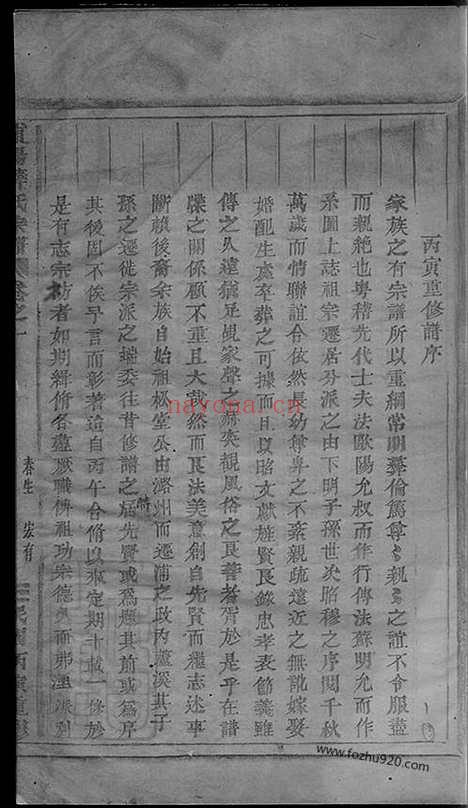 丙寅重修譜序
家族之有宗譜所以重綱常明彝倫篤尊尊親親之誼不令服盡
而親絶也粵稽先代士夫法歐陽允叔而作行傳法蘇明允而作
系圖上誌祖宗遷居分派之由下明子孫世次昭穆之序閱千秋
萬歲而情聯誼合依然長幼尊卑之不紊親疏遠近之無訛嫁娶
婚配生處卒葬之可據而且以昭文獻旌賢良錄忠孝表節義雖
傳之久遠猶足覘家聲之赫奕觀風俗之良善者胥於是乎在譜
牒之關係顧不重且大歟然而良法美意創自先賢而繼志述事
斷賴後裔余族自始祖松堂公由潞州而遷浦之政內蘆溪其子
孫之遷徙宗派之端委往昔修譜之 先賢或為題其前或為序
其後固不俟早言而彰著迨自丙午合脩以來定期十載一修於
是有志宗祊者如期緝脩各盡厥職俾祖功宗德與而弗湮派別
氏宗譜 卷之一
春生 宏有
民國丙寅重修
nayona.cn
www.fozhu920.com